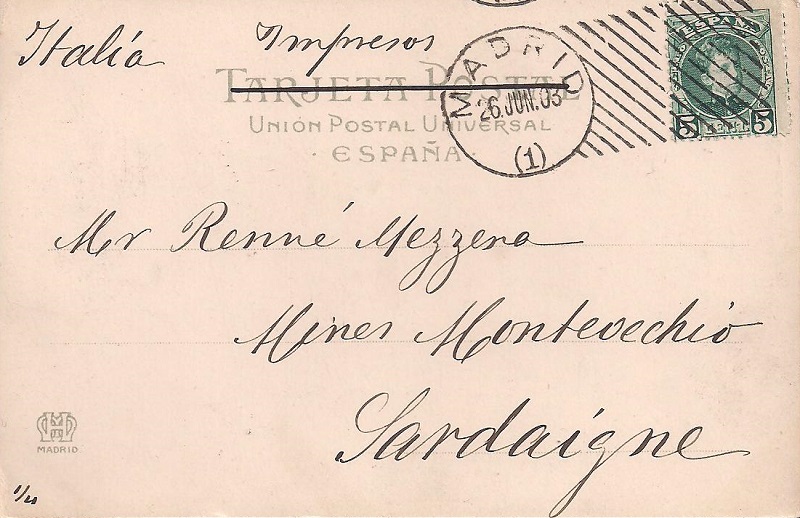 Italia
Impresos
TARJETA POSTAL
UNIÓN POSTAL UNIVERSAL
ESPAÑA
MADRID
26.JUN.03
(1)
ESPAÑA
5 CENT. 5
Mr Renné Mezzena
Mines Montevechio
Sardaigne
MADRID